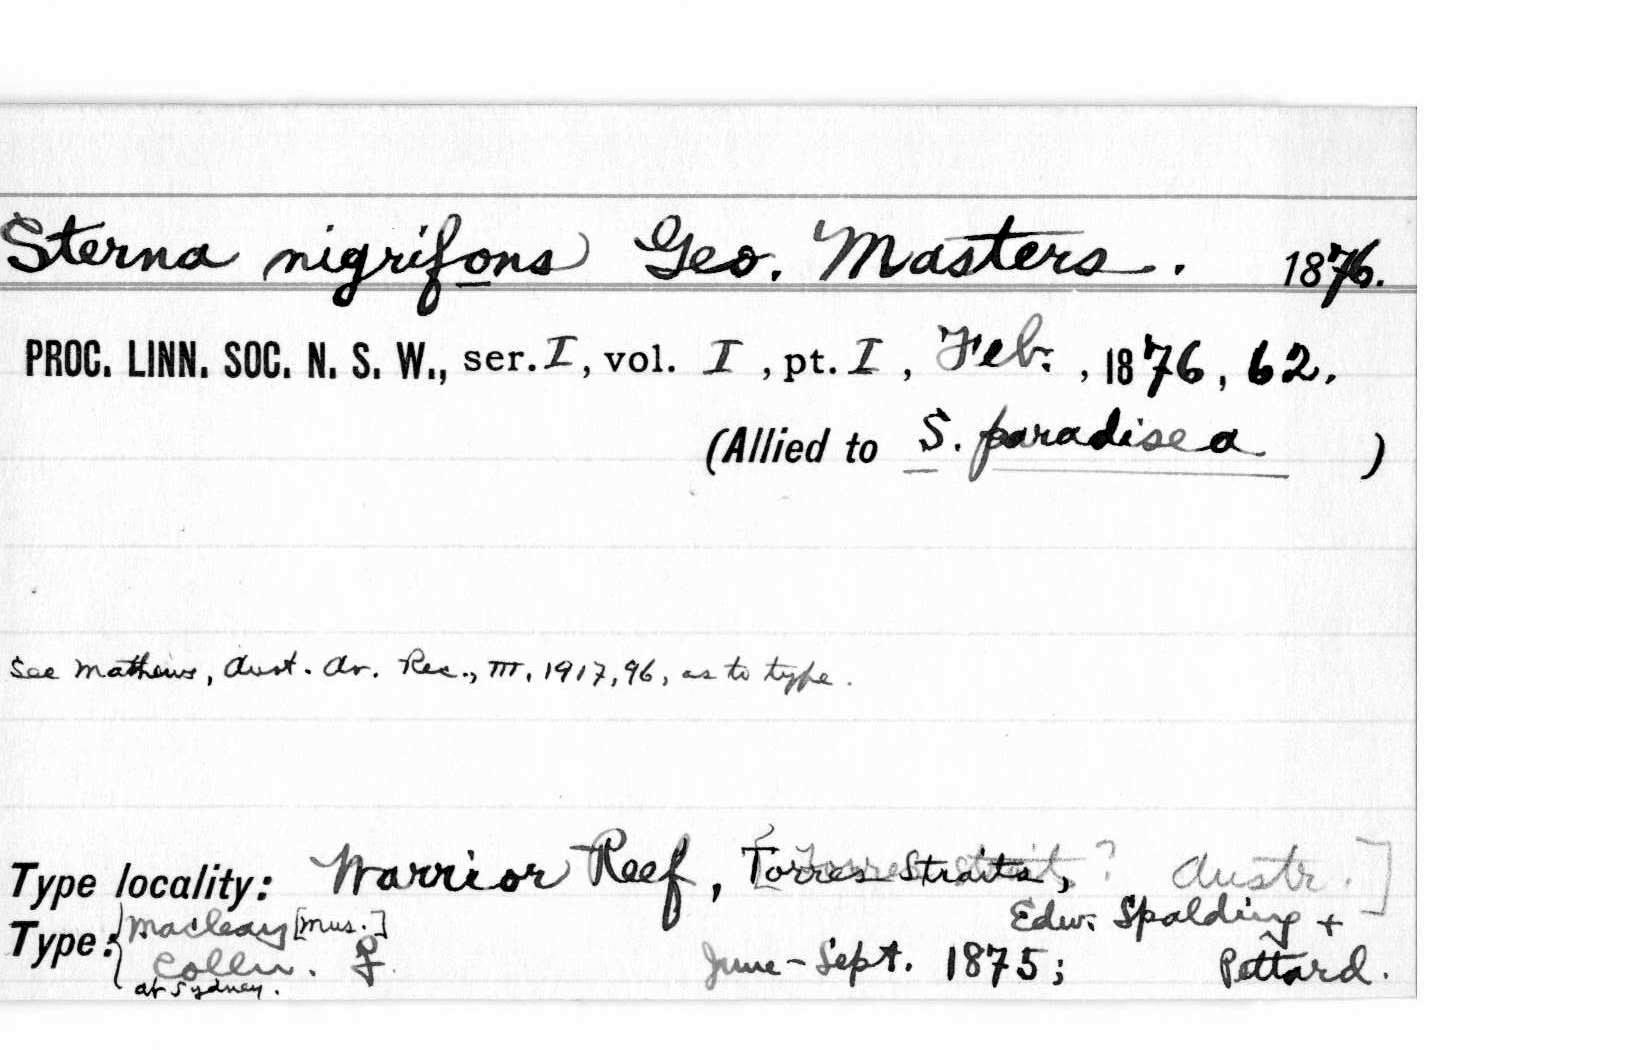 Sterna nigrifons Geo. Masters. 1876.
PROC. LINN. SOC. N. S. W., ser. I, vol. I, pt. I, Feb., 1876, 62.
(Allied to S. paradisea )
See Mathews, Aust. Av. Rec., III, 1917, 96, as to type.
Type locality: Warrior Reef, Torres Straits, ? Austr.]
Edw. Spalding +
Type: Macleay [Mus.]
Colln. ♀ June-Sept. 1875; Pettard.
at Sydney.